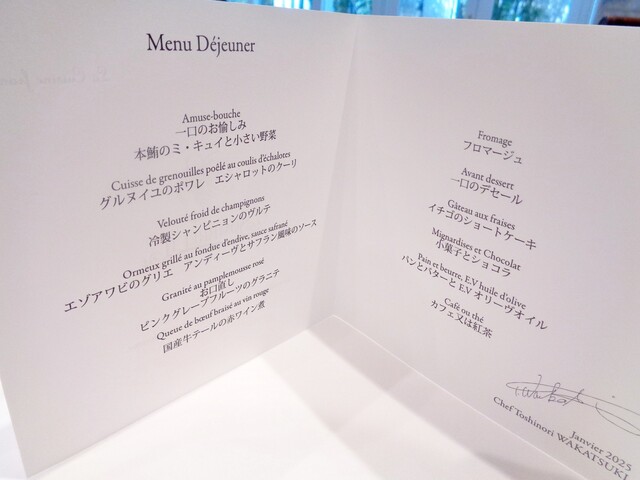 Menu Déjeuner
Amuse-bouche
一口のお愉しみ
本鮪のミ・キュイと小さい野菜
Cuisse de grenouilles poêlé au coulis d'échalotes
グルヌイユのポワレ エシャロットのクーリ
Velouté froid de champignons
冷製シャンピニョンのヴルテ
Ormeux grillé au fondue d'endive, sauce safrané
エゾアワビのグリエ アンディーヴとサフラン風味のソース
Granité au pamplemousse rosé
お口直し
ピンクグレープフルーツのグラニテ
Queue de bœuf braisé au vin rouge
国産牛テールの赤ワイン煮
Fromage
フロマージュ
Avant dessert
一口のデセール
Gâteau aux fraises
イチゴのショートケーキ
Mignardises et Chocolat
小菓子とショコラ
Pain et beurre, E.V huile d'olive
パンとバターと E.V オリーヴオイル
Café ou thé
カフェ又は紅茶
Janvier 2025
Chef Toshinori WAKATSUKI